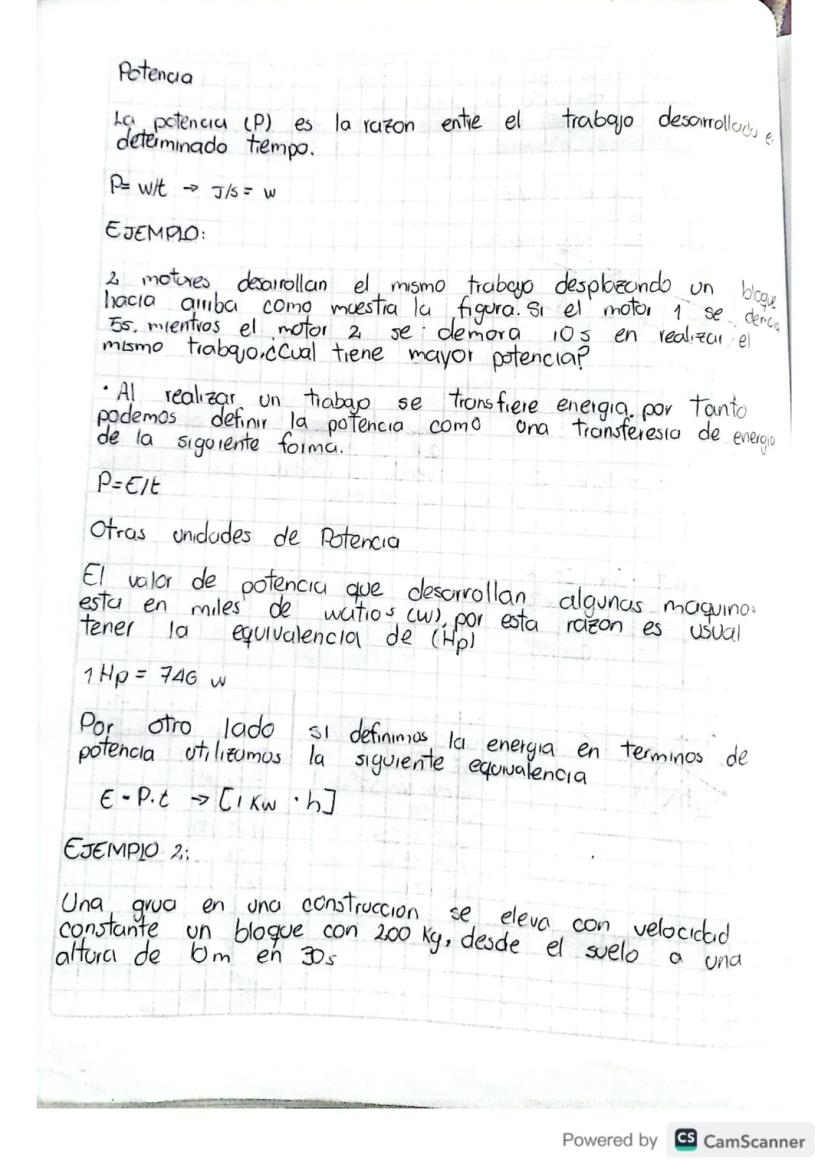 Potencia
La potencia (P) es la razon entre el trabajo desarrollado e
determinado tiempo.
P= w/t → J/s = w
EJEMPLO:
2 motores desarrollan el mismo trabajo desplazando un bloque
hacia arriba como muestra la figura. Si el motor 1 se
5s. mientras el motor 2 se demora 10s en realizar el
mismo trabajo. ¿Cual tiene mayor potencia?
· Al realizar un trabajo se transfiere energia. por Tanto
podemos definir la potencia como una transferesia de energia
de la siguiente forma.
P=E/t
Otras unidades de Potencia
El valor de potencia que desarrollan algunas maquinas
esta en miles de watios (w), por esta razon es usual
tener la equivalencia de (Hp)
1 Hp = 746 w
Por otro lado si definimos la energia en terminos de
potencia utilizamos la siguiente equivalencia
E = P.t → [1 Kw · h]
EJEMPLO 2:
Una grua en una construccion se eleva con velocidad
constante un bloque con 200 Kg, desde el suelo a una
altura de 6m en 30s
Powered by CS CamScanner